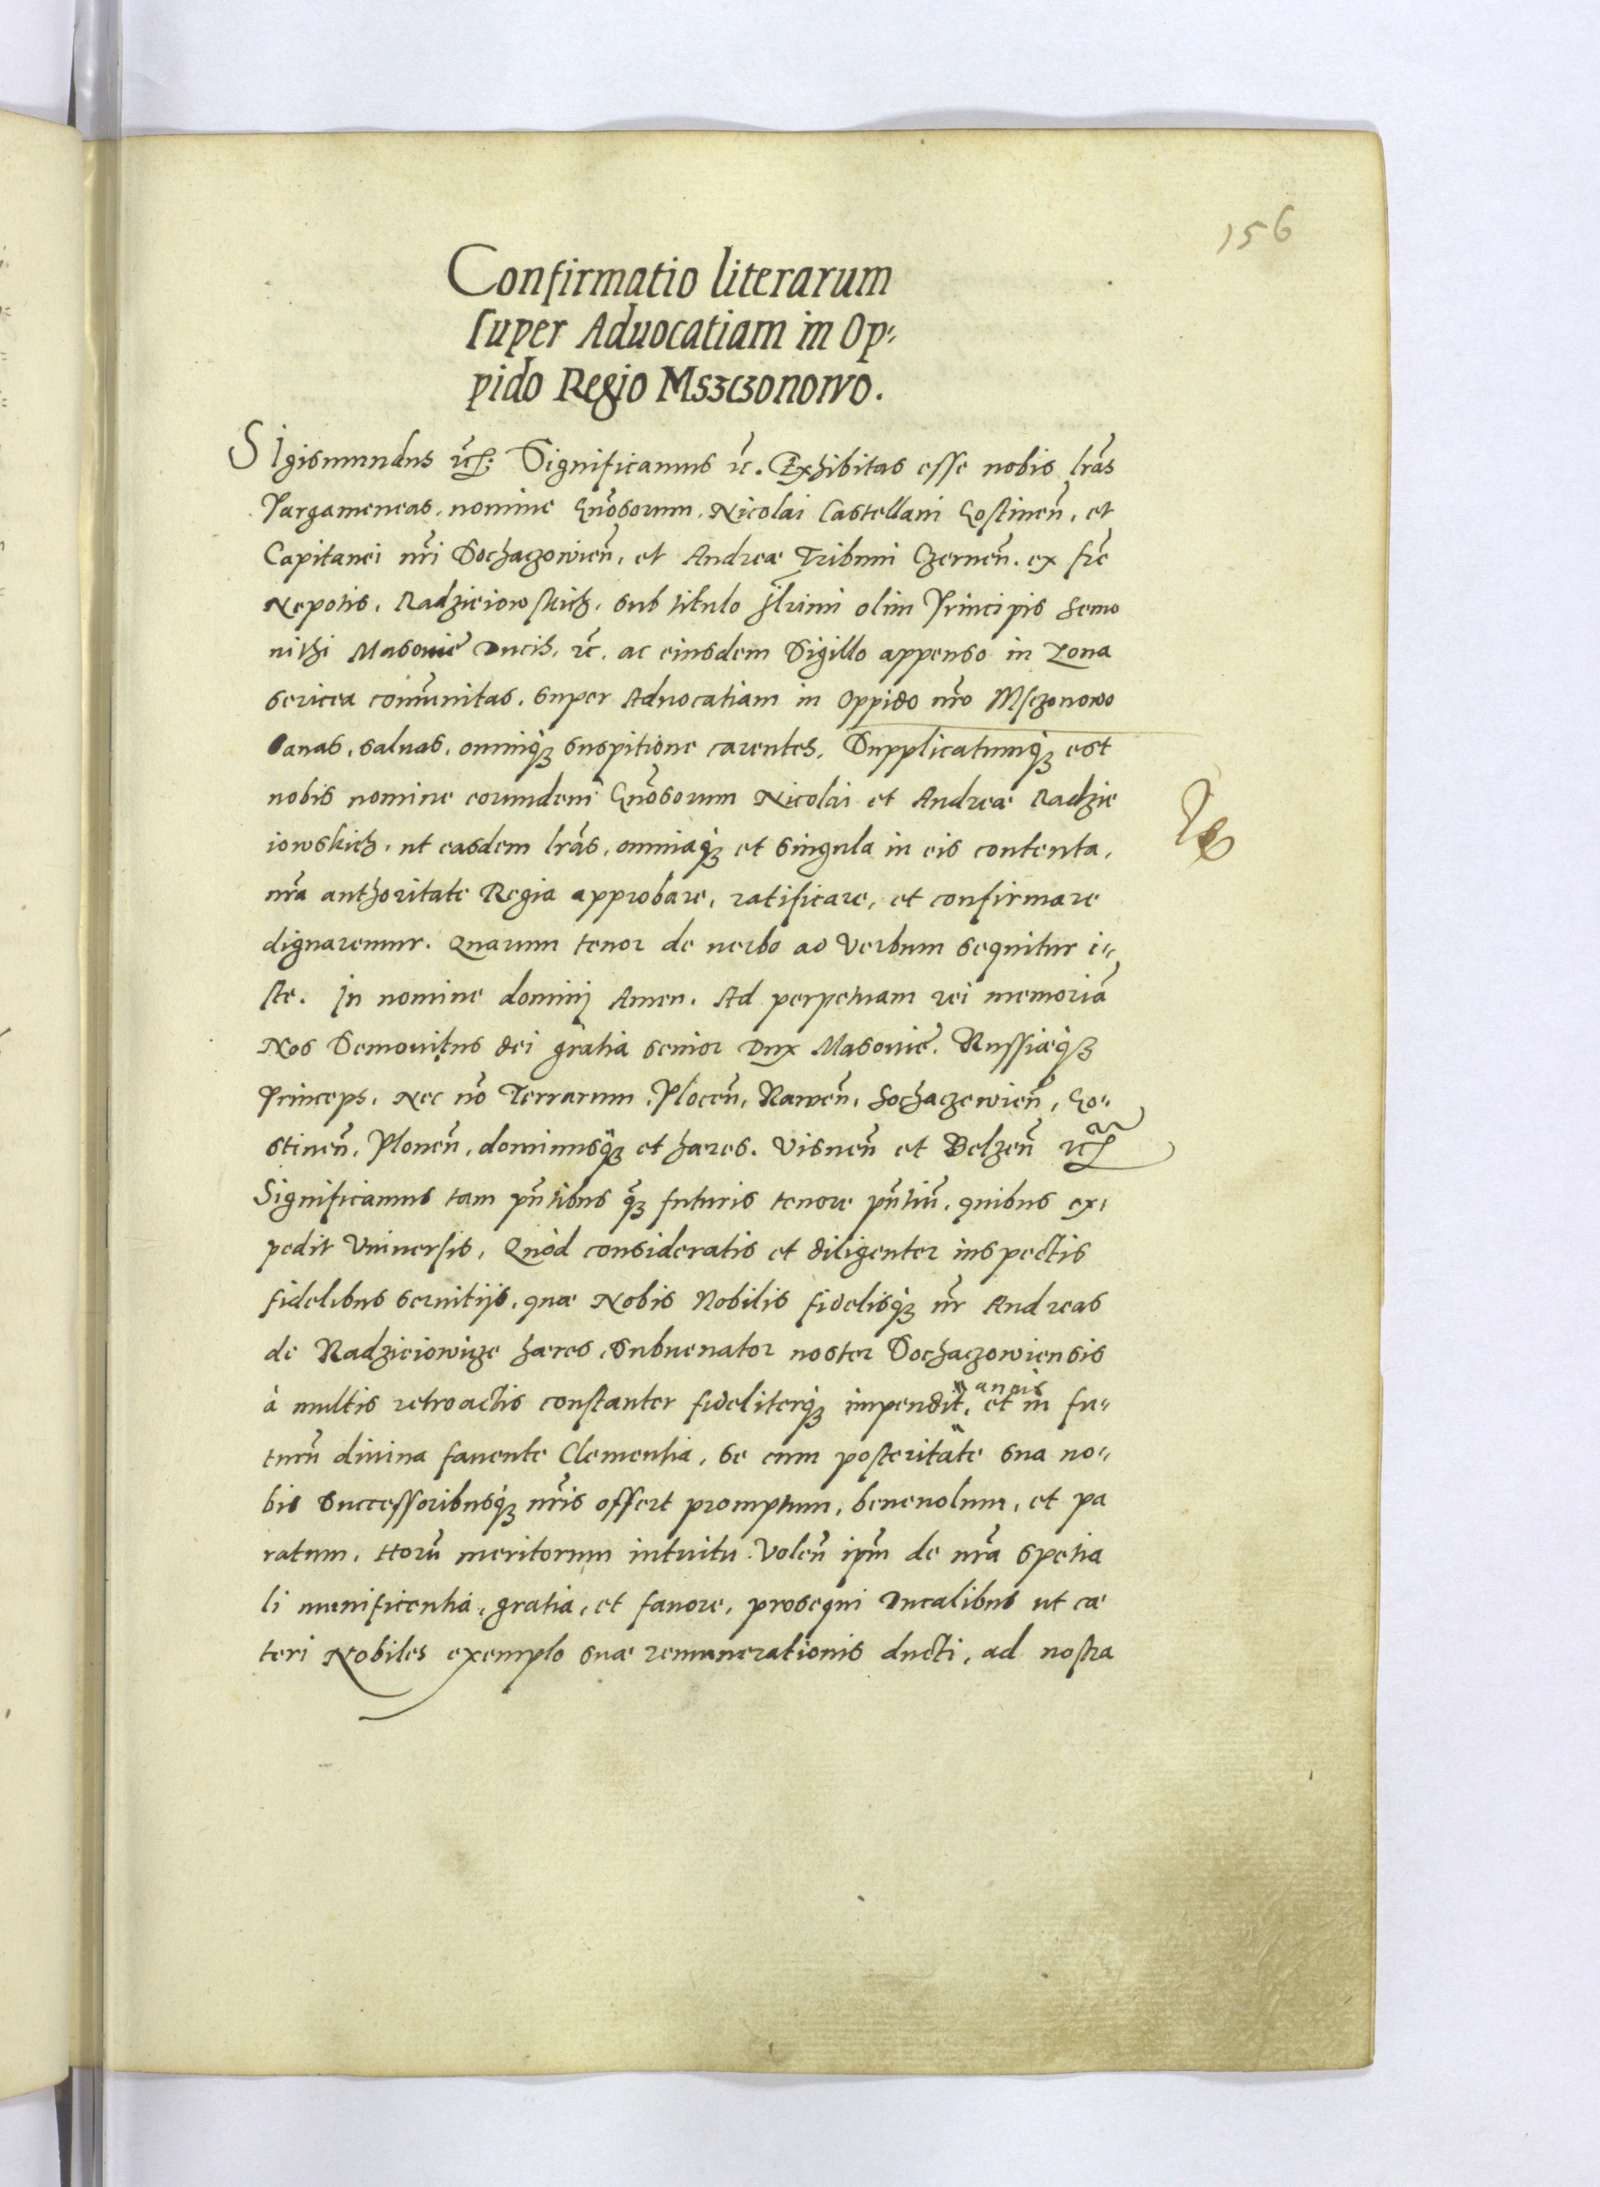 156
Confirmatio literarum
super Aduocatiam in Op-
pido Regio Mszczonowo.
SIgismundus etc. Significamus etc. Exhibitas esse nobis lrãs
Pargameneas, nomine Gnõsorum, Nicolai Castellani Gostinen̄, et
Capitanei nr̃i Sochaczowien̄, et Andreæ Tribuni Czernen̄. ex fr̃e
Nepotis, Radzieiowskich, sub titulo Jllrimi olim Principis Semo
uithi Masouiæ Ducis, etc. ac eiusdem Sigillo appenso in Zona
sericea com̃unitas, super Aduocatiam in Oppido nr̃o Msczonowo
sanas, saluas, omniq3 suspitione carentes, Supplicatumq3 est
nobis nomine eorundem Gnõsorum Nicolai et Andreæ Radzie
iowskich, ut easdem lrãs, omniaq3 et singula in eis contenta,
nr̃a authoritate Regia approbare, ratificare, et confirmare
dignaremur. Quarum tenor de uerbo ad Verbum sequitur i-
ste. In nomine dominij Amen. Ad perpetuam rei memoriã
Nos Semouitus dei gratia senior Dux Masouiæ, Russiæq3
Princeps, Nec nõ Terrarum, Plocen̄, Rawen̄, Sochaczewien̄, Go-
stinen̄, Plonen̄, dominusq3 et hæres, Visnen̄ et Belzen̄ etc
Significamus tam pn̄tibus q̃3 futuris tenore pn̄tiũ, quibus ex-
pedit Vniuersis, Quòd consideratis et diligenter inspectis
fidelibus seruitijs, quæ Nobis Nobilis fidelisq3 nr̃ Andreas
de Radzieiowize hæres, Subuenator noster Sochaczowiensis
à multis retroactis constanter fideliterq3 impendit, annis et in fu-
turũ diuina fauente Clementia, se cum posteritate sua no-
bis Successoribusq3 nr̃is offert promptum, beneuolum, et pa
ratum, Horũ meritorum intuitu Volen̄ ipm̃ de nr̃a spetia
li munificentia, gratia, et fauore, prosequi Ducalibus ut cæ
teri Nobiles exemplo suæ remunerationis ducti, ad nostra